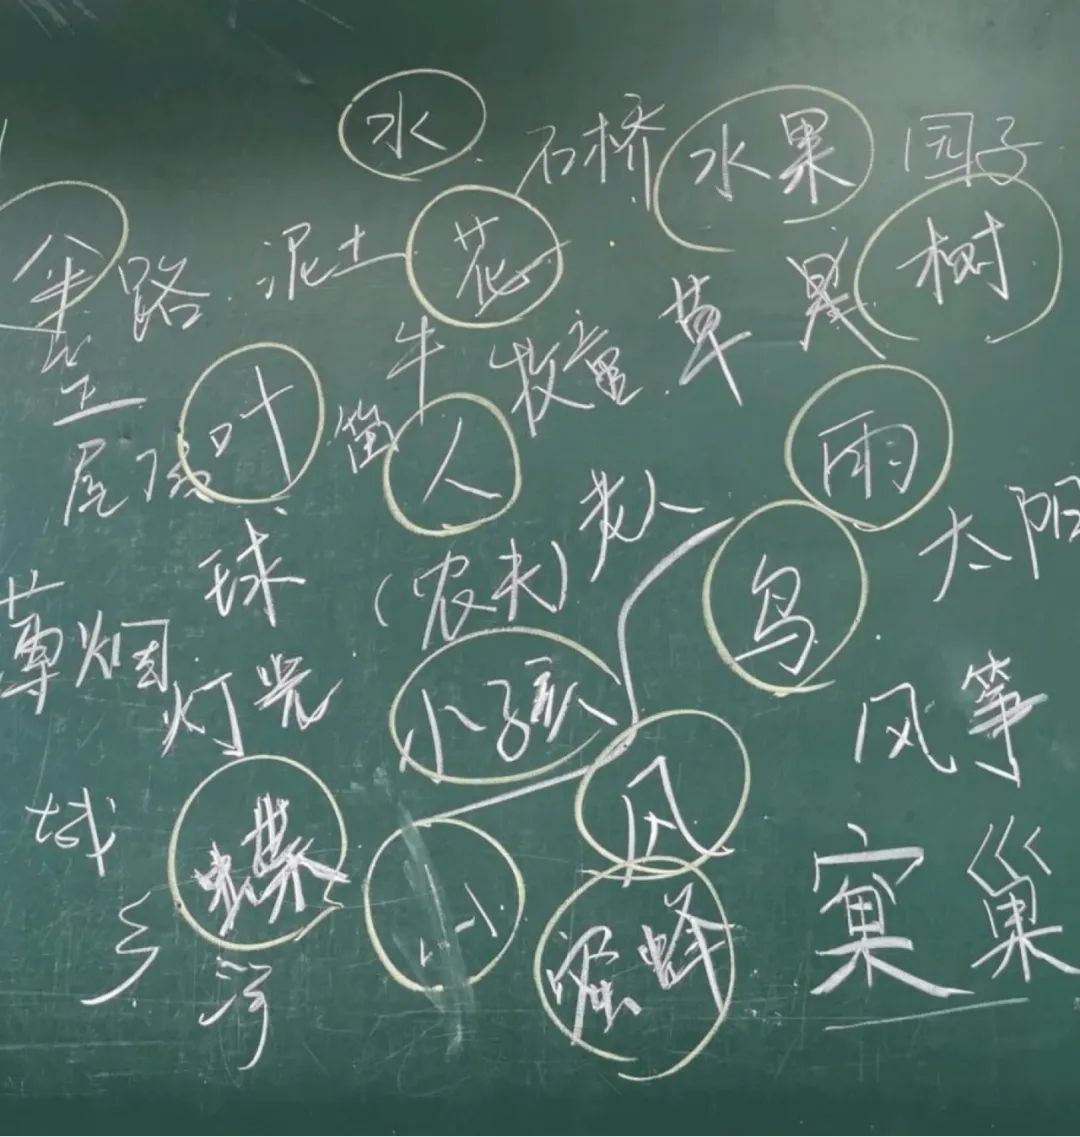 水 石桥 水果 园子
路 泥土 花 草 果 树
牛 牧童
尘
叶 笛 人 雨
老人 太阳
球 (农夫) 鸟
草 烟
灯光 小孩 风 风筝
城
蝶 小
乡 蜜蜂 窠 巢
河